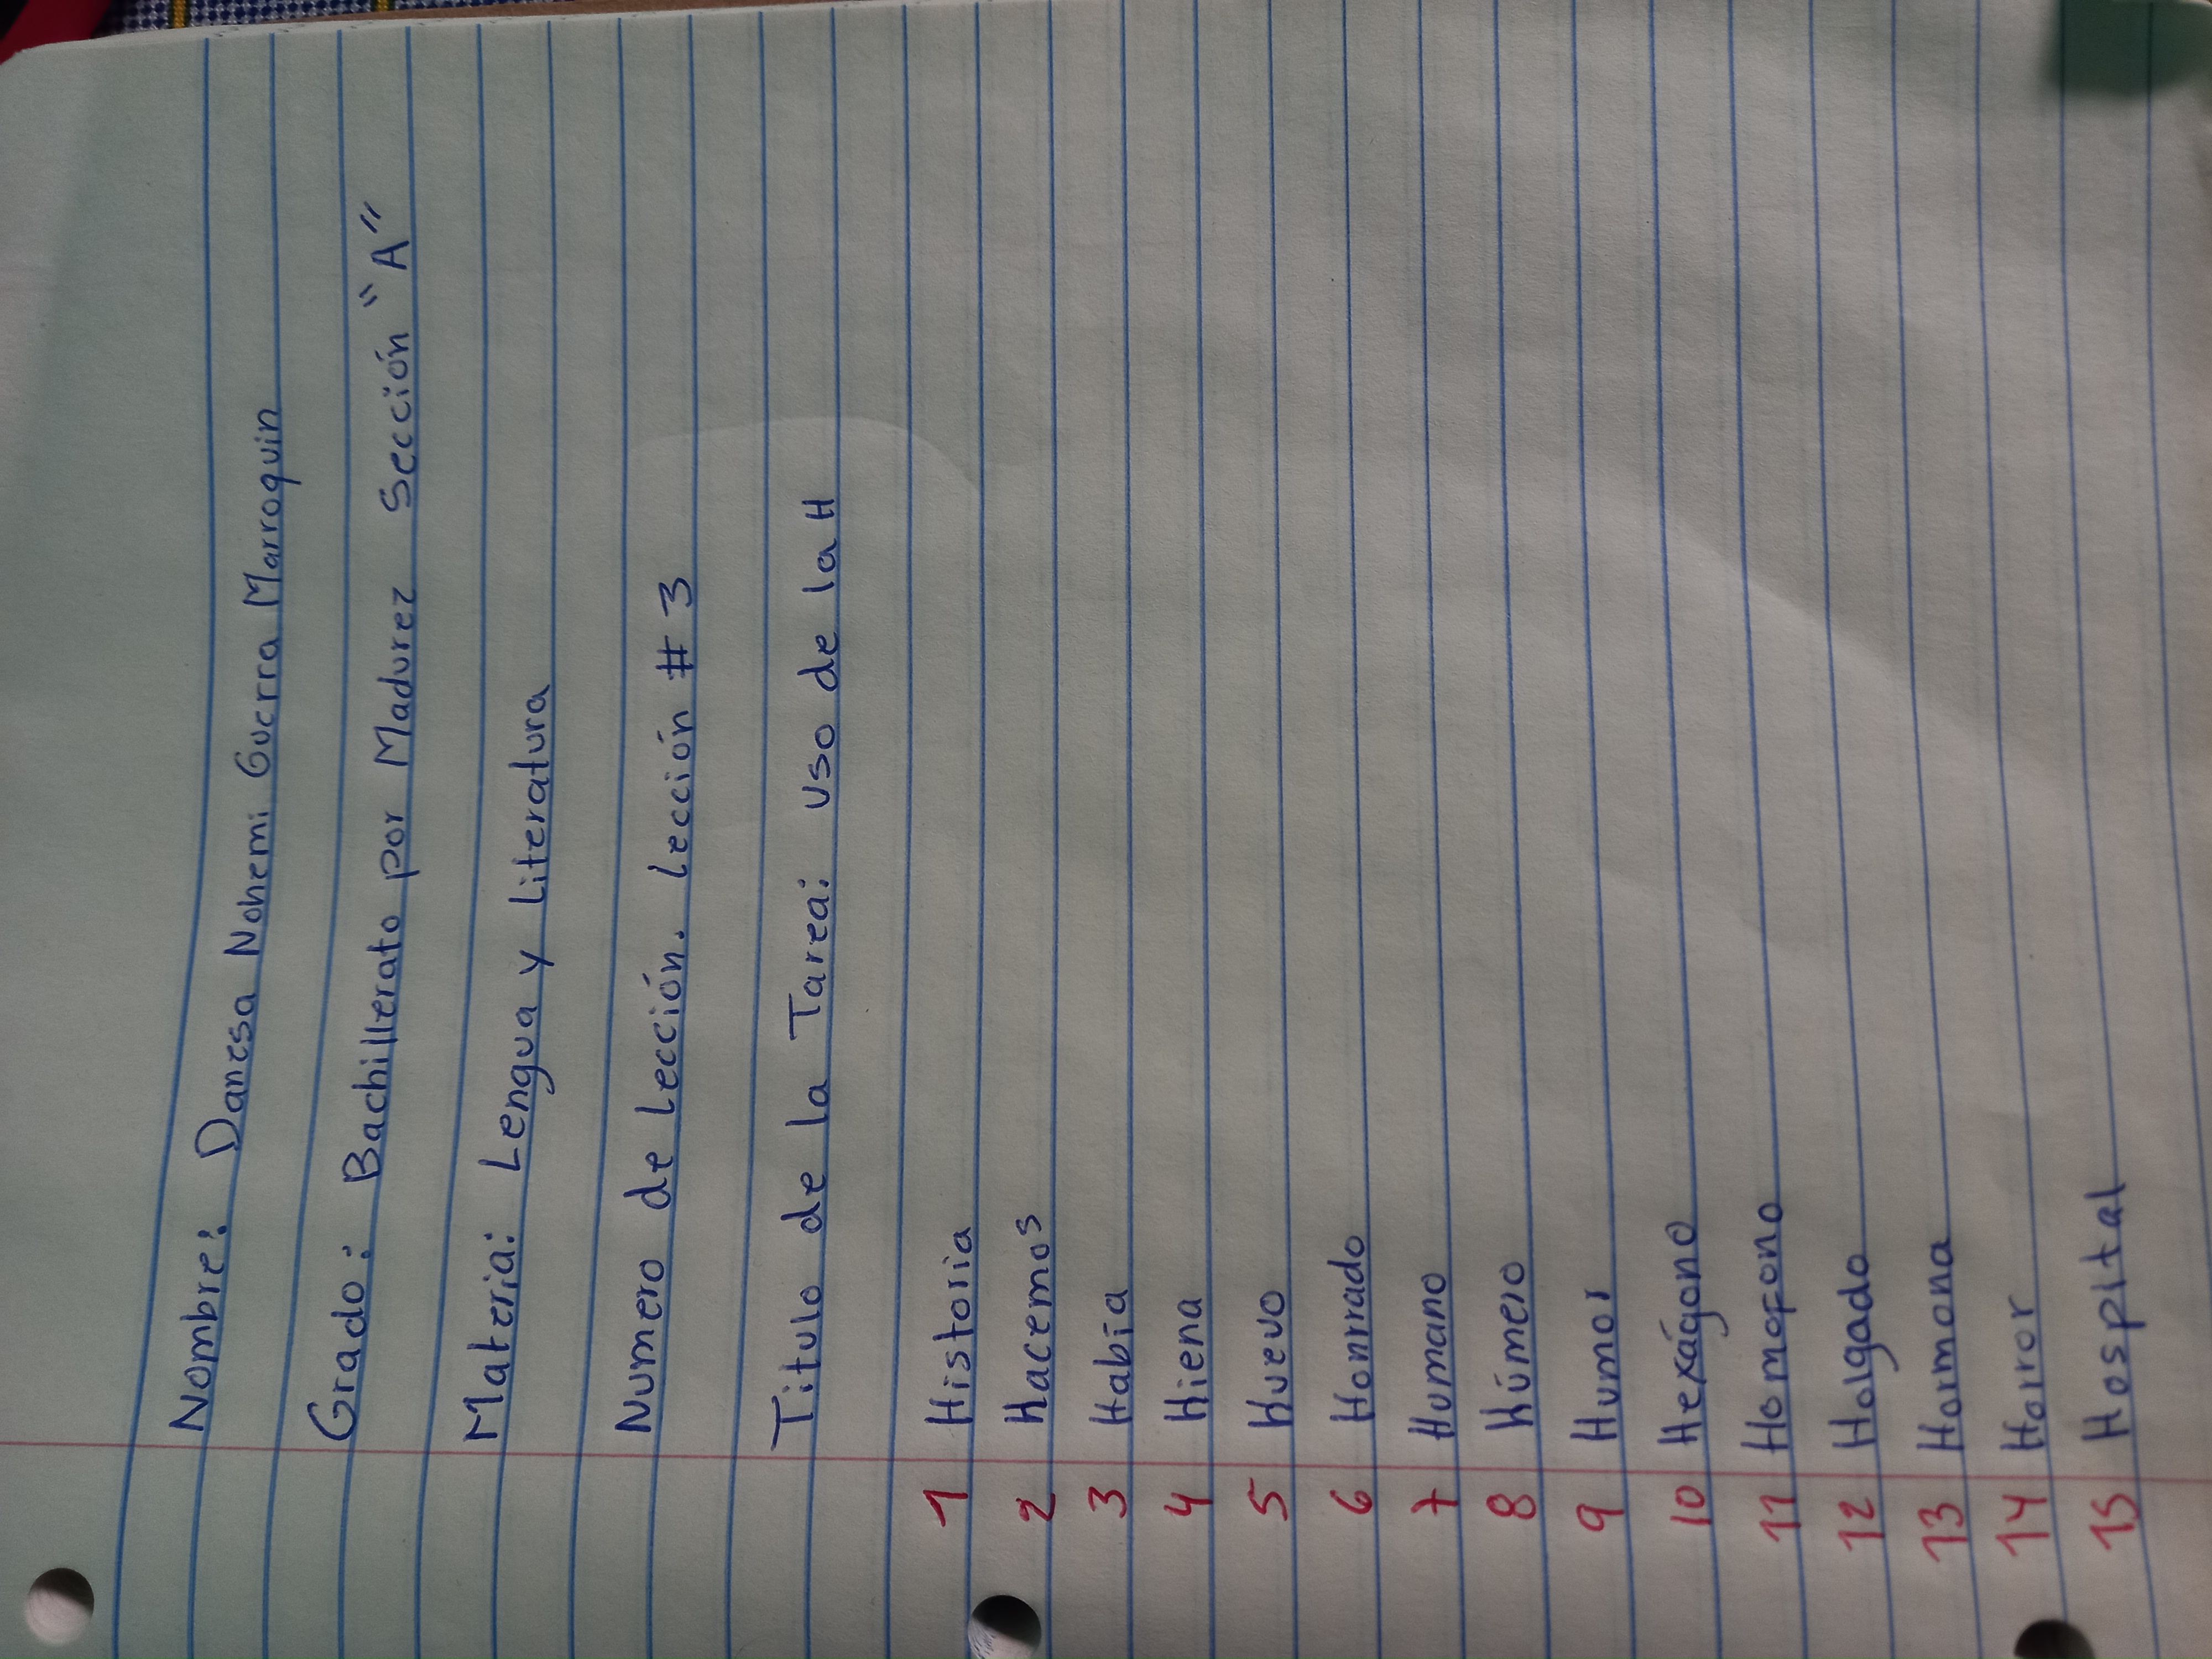 Nombre: Danesa Nohemi Guerra Marroquin
Grado: Bachillerato por Madurez Sección "A"
Materia: Lengua y Literatura
Numero de Lección. Lección # 3
Titulo de la Tarea: uso de la H
1 Historia
2 Hacemos
3 Había
4 Hiena
5 Huevo
6 Honrrado
7 Humano
8 Húmero
9 Humor
10 Hexágono
11 Homofono
12 Holgado
13 Hormona
14 Horror
15 Hospital